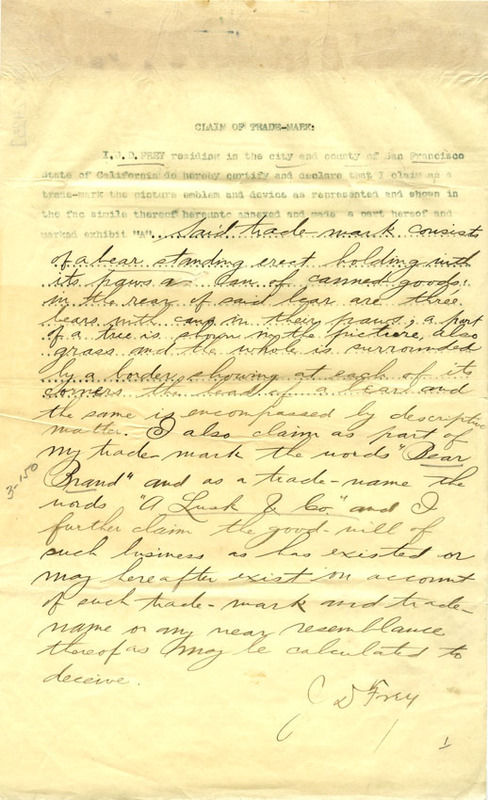 CLAIM OF TRADE-MARK:
I, J. D. FREY residing in the city and county of San Francisco
State of California do hereby certify and declare that I claim as a
trade-mark the picture emblem and device as represented and shown in
the fac simile thereof hereunto annexed and made a part hereof and
marked exhibit "A" Said trade-mark consists
of a bear standing erect holding with
its paws a can of canned goods;
in the rear of said bear are three
bears with cans in their paws; a part
of a tree is shown in the picture, also
grass and the whole is surrounded
by a border, showing at each of its
corners the head of a bear and
the same is encompassed by descriptive
matter. I also claim as part of
my trade-mark the words "Bear
Brand" and as a trade-name the
words "A Lusk & Co." and I
further claim the good-will of
such business as has existed or
may hereafter exist on account
of such trade-mark and trade-
name or any near resemblance
thereof as may be calculated to
deceive.
J D Frey
3-150
1